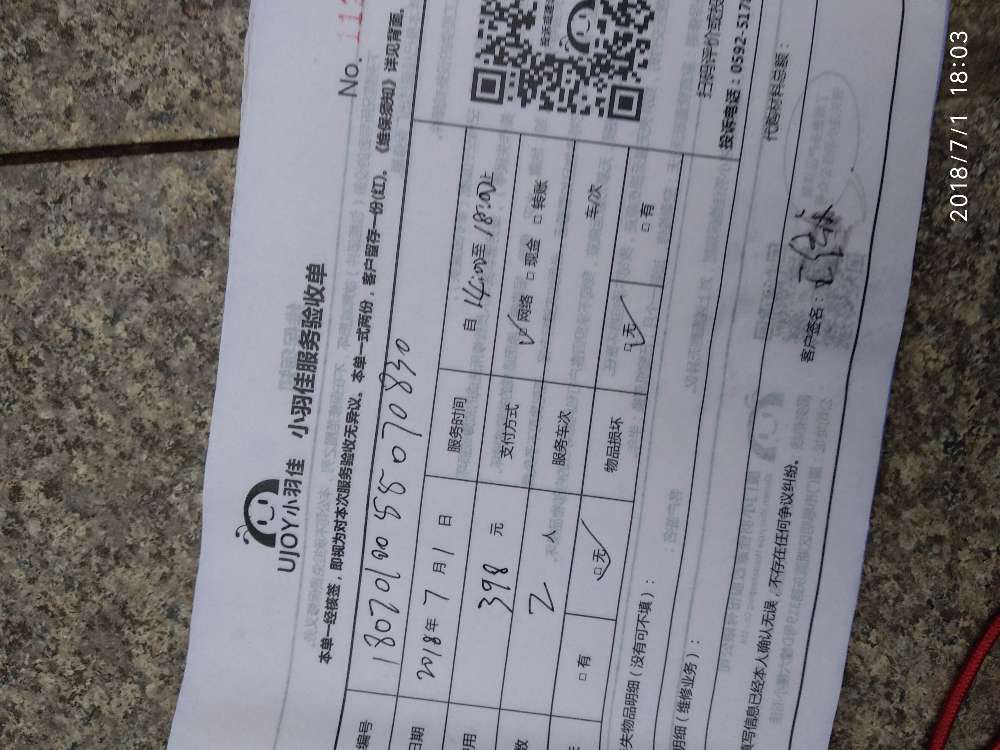 No. 11
UJOY小羽佳 小羽佳服务验收单
本单一经核签，即视为对本次服务验收无异议。本单一式两份，客户留存一份(红)。《维保须知》详见背面。
编号 1807010055070830
日期 2018年7月1日 服务时间 自14:00至18:00止
用 398元 支付方式 ☑网络 □现金 □转账
数 2人 服务车次 车/次
□有 ☑无 物品损坏 ☑无 □有
失物品明细（没有可不填）：
明细（维修业务）：
扫码评价或投
投诉电话：0592-517
代购材料总额：
写信息已经本人确认无误，不存在任何争议纠纷。 客户签名：
2018/7/1 18:03